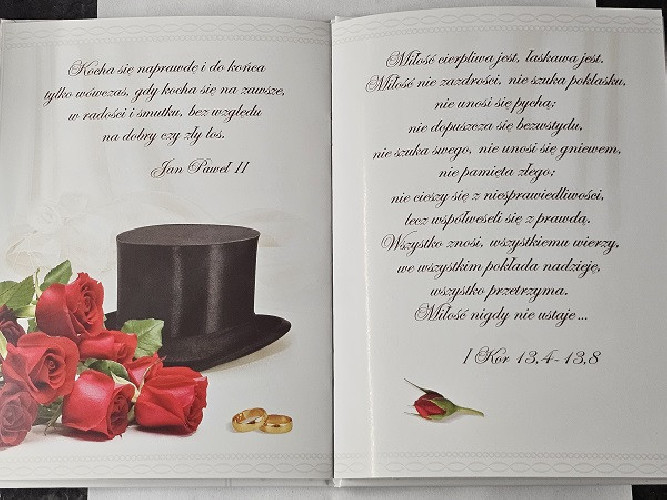 Kocha się naprawdę i do końca
tylko wówczas, gdy kocha się na zawsze,
w radości i smutku, bez względu
na dobry czy zły los.
Jan Paweł II
Miłość cierpliwa jest, łaskawa jest.
Miłość nie zazdrości, nie szuka poklasku,
nie unosi się pychą;
nie dopuszcza się bezwstydu,
nie szuka swego, nie unosi się gniewem,
nie pamięta złego;
nie cieszy się z niesprawiedliwości,
lecz współweseli się z prawdą.
Wszystko znosi, wszystkiemu wierzy,
we wszystkim pokłada nadzieję,
wszystko przetrzyma.
Miłość nigdy nie ustaje...
I Kor 13,4-13,8